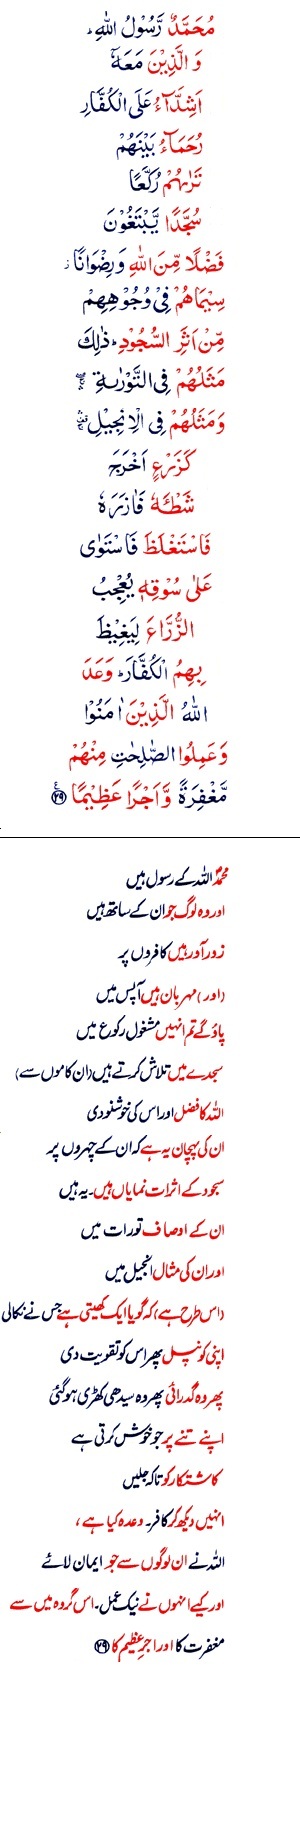 مُحَمَّدٌ رَّسُوْلُ اللّٰهِ ؕ
وَ الَّذِيْنَ مَعَهٗۤ
اَشِدَّآءُ عَلَى الْكُفَّارِ
رُحَمَآءُ بَيْنَهُمْ
تَرٰىهُمْ رُكَّعًا
سُجَّدًا يَّبْتَغُوْنَ
فَضْلًا مِّنَ اللّٰهِ وَ رِضْوَانًا ز
سِيْمَاهُمْ فِيْ وُجُوْهِهِمْ
مِّنْ اَثَرِ السُّجُوْدِ ؕ ذٰلِكَ
مَثَلُهُمْ فِي التَّوْرٰىةِ
وَ مَثَلُهُمْ فِي الْاِنْجِيْلِ
كَزَرْعٍ اَخْرَجَ
شَطْـَٔهٗ فَاٰزَرَهٗ
فَاسْتَغْلَظَ فَاسْتَوٰى
عَلٰى سُوْقِهٖ يُعْجِبُ
الزُّرَّاعَ لِيَغِيْظَ
بِهِمُ الْكُفَّارَ ؕ وَعَدَ
اللّٰهُ الَّذِيْنَ اٰمَنُوْا
وَ عَمِلُوا الصّٰلِحٰتِ مِنْهُمْ
مَّغْفِرَةً وَّ اَجْرًا عَظِيْمًا ﴿۲۹﴾
محمدؐ اللہ کے رسول ہیں
اور وہ لوگ جو ان کے ساتھ ہیں
زور آور ہیں کافروں پر
(اور) مہربان ہیں آپس میں
پاؤ گے تم انہیں مشغول رکوع میں
سجدے میں تلاش کرتے ہیں (ان کاموں سے)
اللہ کا فضل اور اس کی خوشنودی
ان کی پہچان یہ ہے کہ ان کے چہروں پر
سجود کے اثرات نمایاں ہیں۔ یہ ہیں
ان کے اوصاف تورات میں
اور ان کی مثال انجیل میں
(اس طرح ہے) کہ گویا ایک کھیتی ہے جس نے نکالی
اپنی کونپل پھر اس کو تقویت دی
پھر وہ گدرائی پھر وہ سیدھی کھڑی ہوگئی
اپنے تنے پر جو خوش کرتی ہے
کاشتکار کو تاکہ جلیں
انہیں دیکھ کر کافر۔ وعدہ کیا ہے ،
اللہ نے ان لوگوں سے جو ایمان لائے
اور کیے انہوں نے نیک عمل۔ اس گروہ میں سے
مغفرت کا اور اجر عظیم کا ﴿۲۹﴾